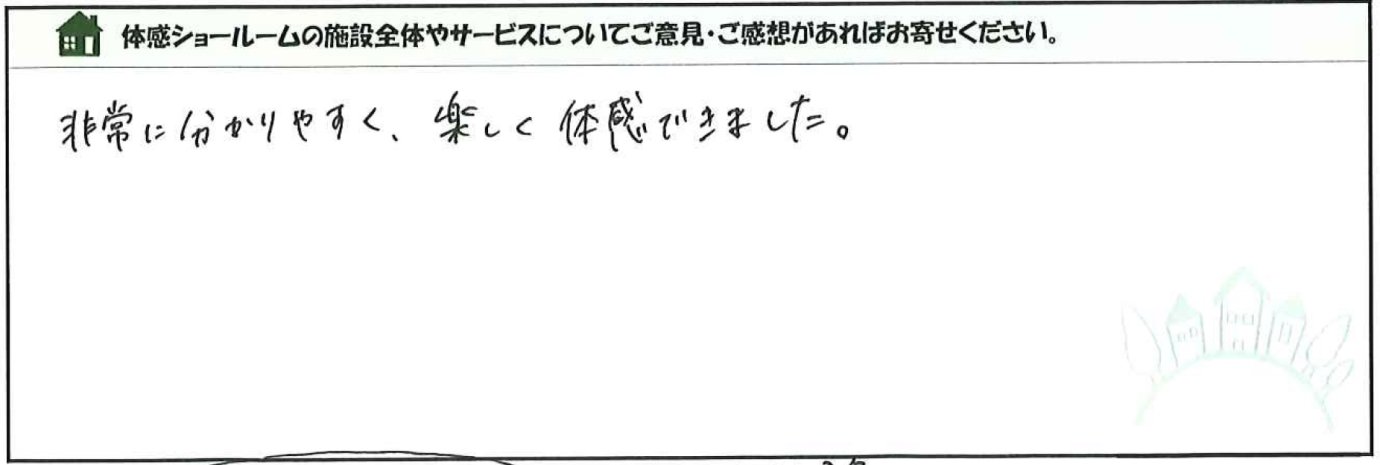 体感ショールームの施設全体やサービスについてご意見・ご感想があればお寄せください。
非常に分かりやすく、楽しく体感できました。